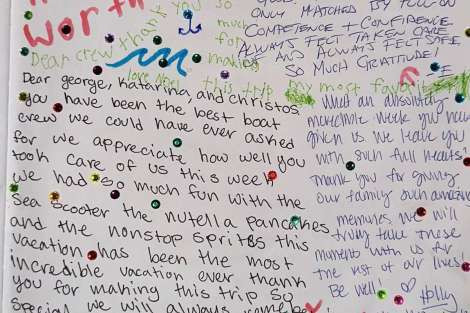 worth
you so
much
for
making
this trip my most favorite
Dear crew thank
love Noel
ONLY MATCHED BY
COMPETENCE + CONFIDENCE.
ALWAYS FELT TAKEN CARE
OF AND ALWAYS FELT SAFE
SO MUCH GRATITUDE!
Dear george, Katarina, and christos
you have been the best boat
crew we could have ever asked
for we appreciate how well you
took care of us this week
we had so much fun with the
sea scooter the nutella pancakes
and the nonstop sprites this
vacation has been the most
incredible vacation ever thank
you for making this trip so
special we will always remember
What an absolutely
you have
given us. We leave you
with such full hearts!
Thank you for giving
our family such amazing
memories. We will
truly take these
moments with us for
the rest of our lives!
Be well! ♡ Holly